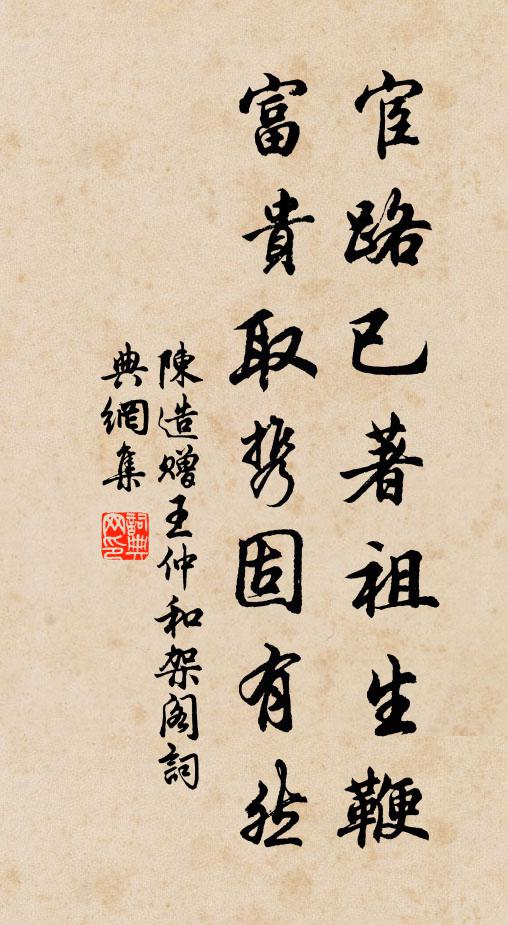 宦路已著祖生鞭
富貴取携固有然
陳造贈王仲和架閣詞
典網集
詞典
网印